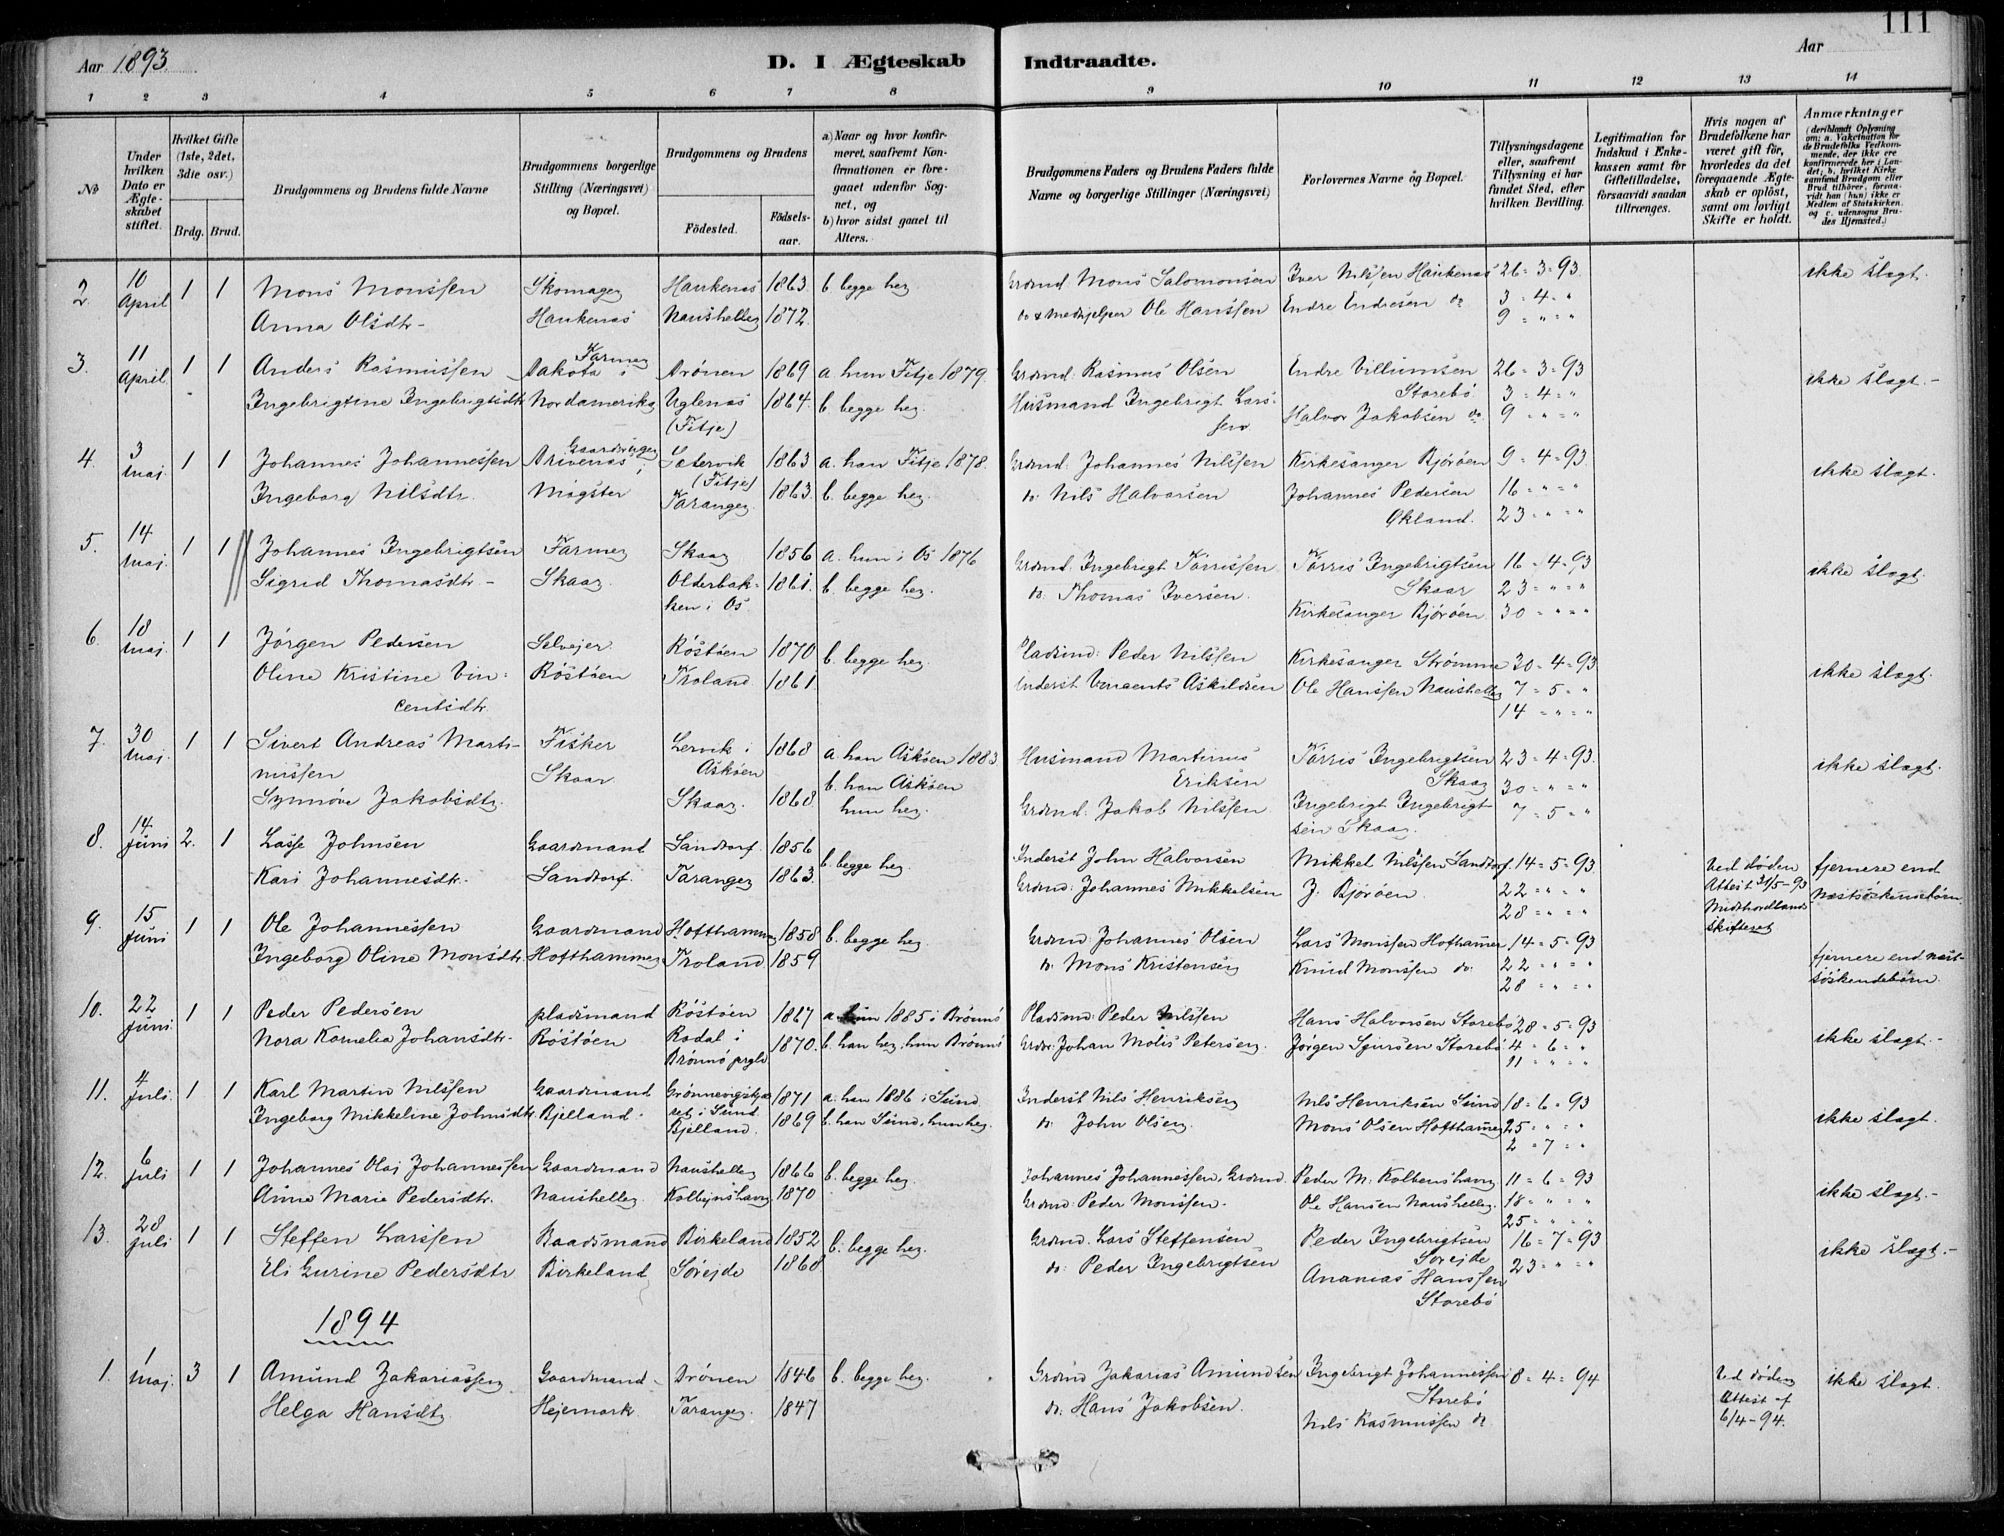 111
Aar 1893 D. I Ægteskab Indtraadte. Aar
1 2 3 4 5 6 7 8 9 10 11 12 13 14
№
Under hvilken Dato er Ægteskabet stiftet.
Hvilket Gifte (1ste, 2det, 3die osv.)
Brdg. Brud.
Brudgommens og Brudens fulde Navne
Brudgommens borgerlige Stilling (Næringsvei) og Bopæl.
Brudgommens og Brudens
Fødested. Fødselsaar.
a) Naar og hvor konfirmeret, saafremt Konfirmationen er foregaaet udenfor Sognet, og
b) hvor sidst gaaet til Alters.
Brudgommens Faders og Brudens Faders fulde Navne og borgerlige Stillinger (Næringsvei)
Forlovernes Navne og Bopæl.
Tillysningsdagene eller, saafremt Tillysning ei har fundet Sted, efter hvilken Bevilling.
Legitimation for Indskud i Enkekassen samt for Giftetilladelse, forsaavidt saadan tiltrænges.
Hvis nogen af Brudefolkene har været gift før, hvorledes da det foregaaende Ægteskab er opløst, samt om lovligt Skifte er holdt.
Anmærkninger
(deriblandt Oplysning om: a. Vakcination for de Brudefolks Vedkommende, der ikke ere konfirmerede her i Landet; b. hvilket Kirkesamfund Brudgom eller Brud tilhører, forsaavidt han (hun) ikke er Medlem af Statskirken. og c. udensogns Brudes Hjemsted.)
2. 10 April 1 1 Mons Monssen Skomager Haukenæs 1863. b. begge her. Grdmd Mons Salomonsen Iver Nilssen Haukenæs 26=3=93. ikke slægt.
Anna Olsdtr. Haukenæs Naushelle 1872. do & medhjelper Ole Hanssen Endre Endresen do 3=4=" 9="="
3. 11 April. 1 1 Anders Rasmussen Farmer Dakota i Drönen 1869 a. hun Fitje 1879. Grdmd: Rasmus Olsen Endre Villumsen Storebö. 26=3=93 ikke slægt.
Ingebrigtine Ingebrigtsdtr Nordamerika Uglenæs (Fitje) 1864. b. begge her. Husmand Ingebrigt Larssen Halvor Jakobsen do 3=4=" 9="="
4. 3 Maj. 1 1 Johannes Johannessen Gaardbruger Drivenæs i Sætervik (Fitje) 1863 a. han Fitje 1878. Grdmd: Johannes Nilssen Kirkesanger Björöen 9=4=93. ikke slægt.
Ingeborg Nilsdtr. Møgster Taranger 1863. b. begge her. do: Nils Halvorsen Johannes Pedersen Økland. 16="=" 23="="
5. 14 Maj. 1 1 Johannes Ingebrigtsen Farmer Skaar 1856 a. hun i Os 1876 Grdmd: Ingebrigt Törrissen Törris Ingebrigtsen Skaar 16=4=93 ikke slægt.
Sigrid Thomasdtr Skaar. Olderbakken i Os. 1861. b. begge her. do: Thomas Iversen. Kirkesanger Björöen 23="=" 30="="
6. 18 Maj. 1 1 Jörgen Pedersen Selvejer Röstöen 1870 b. begge her. Pladsmd: Peder Nilssen Kirkesanger Strömme 30=4=93. ikke slægt.
Oline Kristine Vincentsdtr. Röstöen Troland 1861. Inderst Vincents Askildsen Ole Hanssen Naushelle 7=5=" 14="="
7. 30 Maj. 1 1 Sivert Andreas Martinussen Fisker Lervik i Askøen 1868 a. han Askøen 1883. Husmand Martinus Eriksen Törris Ingebrigtsen Skaar 23=4=93. ikke slægt.
Synnöve Jakobsdtr. Skaar. Skaar. 1868 b. han Askøen hun her. Grdmd: Jakob Nilssen Ingebrigt Ingebrigtsen Skaar. 30="=" 7=5="
8. 14 Juni 2. 1 Lasse Johnsen Gaardmand Sandtorf. 1856 b. begge her. Inderst John Halvorsen Mikkel Nilssen Sandtorf. 14=5=93. Ved døden Attest 31/5-93 Midthordlands skifteret fjernere end næstsöskendebörn.
Kari Johannesdtr. Sandtorf. Taranger 1863. Grdmd: Johannes Mikkelsen J. Björöen. 22="=" 28="="
9. 15 Juni 1 1 Ole Johannessen Gaardmand Hofthammer 1858 b. begge her. Grdmd: Johannes Olsen Lars Monssen Hofthammer 14=5=93 fjernere end næstsöskendebörn
Ingeborg Oline Monsdtr. Hofthammer Troland 1859 do. Mons Kristensen Knud Monssen do. 22="=" 28="="
10. 22 Juni 1 1 Peder Pedersen pladsmand Röstöen 1867 a. hun 1885 i Brönnö Pladsmd: Peder Nilssen Hans Halvorsen Storebö 28=5=93 ikke slægt.
Nora Kornelia Johansdtr. Röstöen Rodal i Brönnö prgld 1870. b. han her, hun Brönnö Grdbr: Johan Petersen. Jörgen Sjursen Storebö 4=6=" 11="="
11. 4 Juli. 1 1 Karl Martin Nilssen Gaardmand i Sund 1871 a. han 1886 i Sund Inderst Nils Henriksen Nils Henriksen Sund 18=6=93 ikke slægt.
Ingeborg Mikkeline Johnsdtr. Bjelland. Bjelland. 1869 b. han Sund, hun her. do. John Olsen. Mons Olsen Hofthammer 25="=" 2=7="
12. 6 Juli 1 1 Johannes Olaj Johannessen Gaardmand Naushelle 1866 b. begge her. Johannes Johannessen, Grdmd. Peder M. Kolbenshavn 11=6=93 ikke slægt.
Anne Marie Pedersdtr. Naushelle. Kolbenshavn 1870 Grdmd: Peder Monssen. Ole Hansen Naushelle. 18="=" 25="="
13. 28 Juli 1 1 Steffen Larssen Baadsmand Birkeland 1852 b. begge her. Grdmd. Lars Steffensen Peder Ingebrigtsen Sörejde 16=7=93 ikke slægt.
Eli Gurine Pedersdtr Birkeland Sörejde 1868 do: Peder Ingebrigtsen Ananias Hanssen Storebö 23="="
1894
1. 1 Maj. 3 1 Amund Zakariassen Gaardmand Drönen 1846 b. begge her. Grdmd Zakarias Amundsen Ingebrigt Johannessen Storebö 8=4=94 Ved døden Attest af 6/4-94. ikke slægt.
Helga Hansdtr Hejemark. Taranger. 1847 do: Hans Jakobsen. Nils Rasmussen do